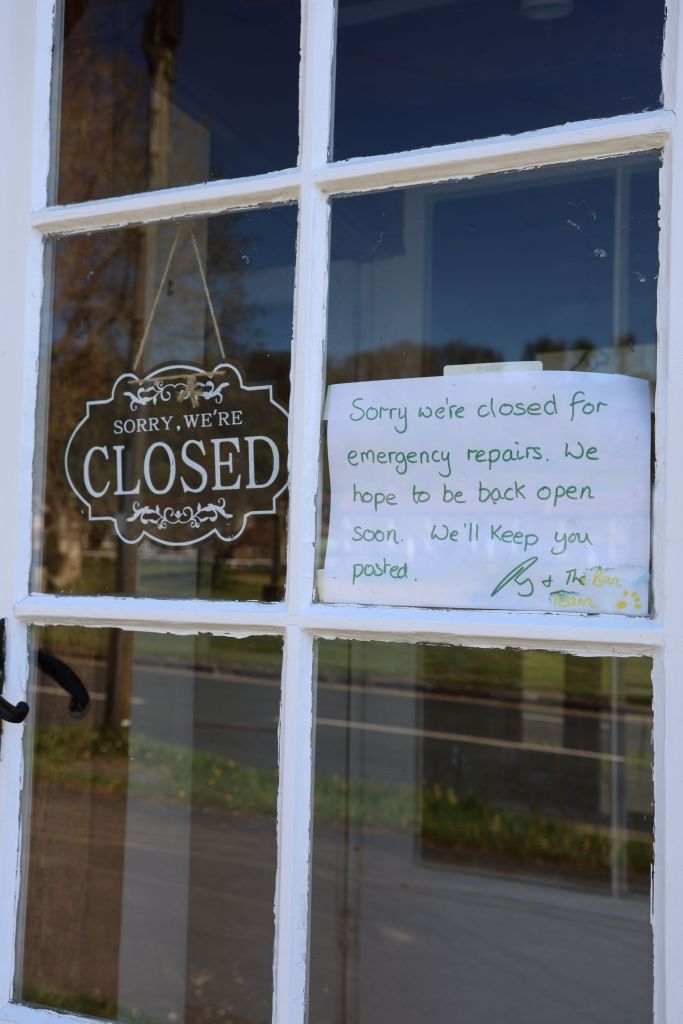 SORRY, WE'RE
CLOSED
Sorry we're closed for
emergency repairs. We
hope to be back open
soon. We'll keep you
posted.
+ The Bar
Team